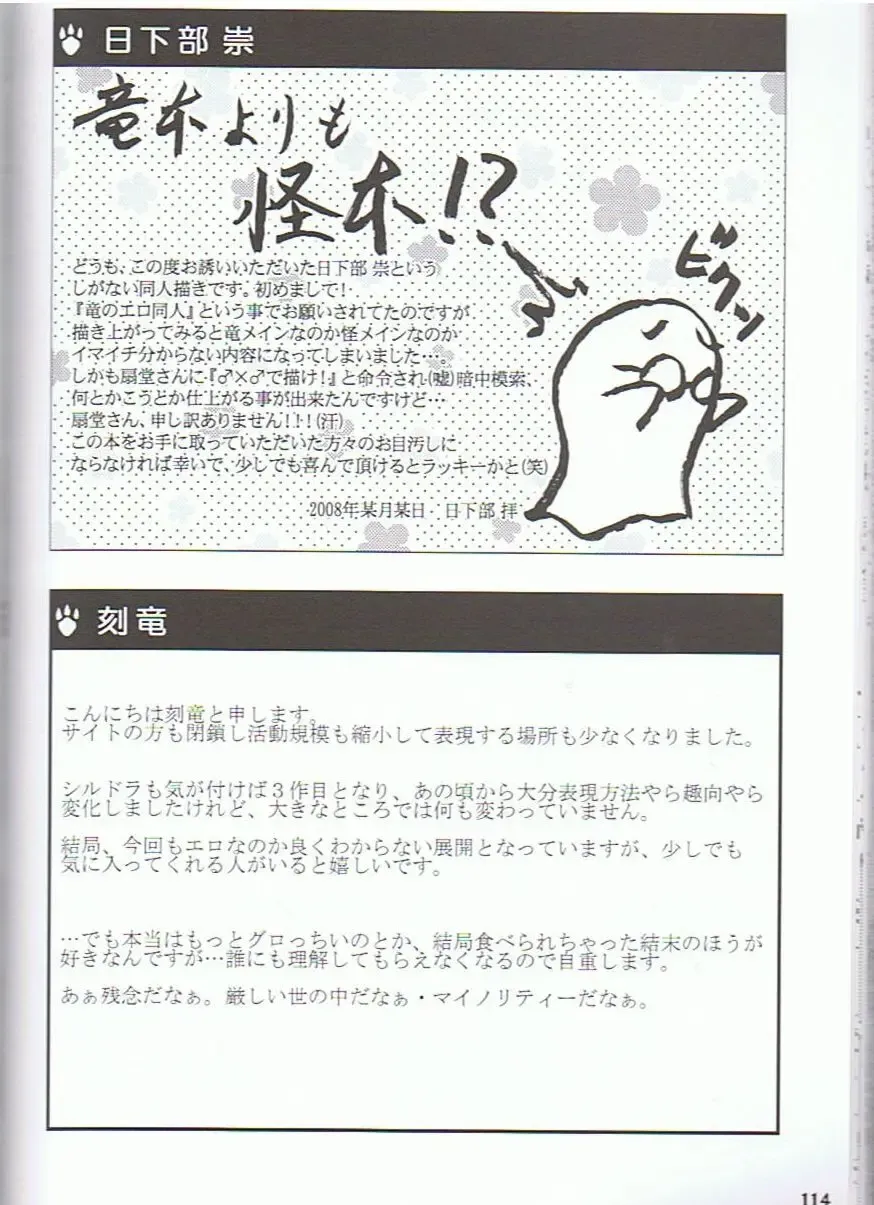 日下部 崇
竜本よりも
怪本!?
ビクン
どうも、この度お誘いいただいた日下部 崇という
しがない同人描きです。初めまして!
『竜のエロ同人』という事でお願いされてたのですが
描き上がってみると竜メインなのか怪メインなのか
イマイチ分からない内容になってしまいました…。
しかも扇堂さんに『♂×♂で描け!』と命令され(嘘)暗中模索、
何とかこうとか仕上がる事が出来たんですけど…
扇堂さん、申し訳ありません!!!(汗)
この本をお手に取っていただいた方々のお目汚しに
ならなければ幸いで、少しでも喜んで頂けるとラッキーかと(笑)
2008年某月某日・ 日下部 拝
刻竜
こんにちは刻竜と申します。
サイトの方も閉鎖し活動規模も縮小して表現する場所も少なくなりました。
シルドラも気が付けば3作目となり、あの頃から大分表現方法やら趣向やら
変化しましたけれど、大きなところでは何も変わっていません。
結局、今回もエロなのか良くわからない展開となっていますが、少しでも
気に入ってくれる人がいると嬉しいです。
…でも本当はもっとグロっちいのとか、結局食べられちゃった結末のほうが
好きなんですが…誰にも理解してもらえなくなるので自重します。
あぁ残念だなぁ。厳しい世の中だなぁ・マイノリティーだなぁ。
114